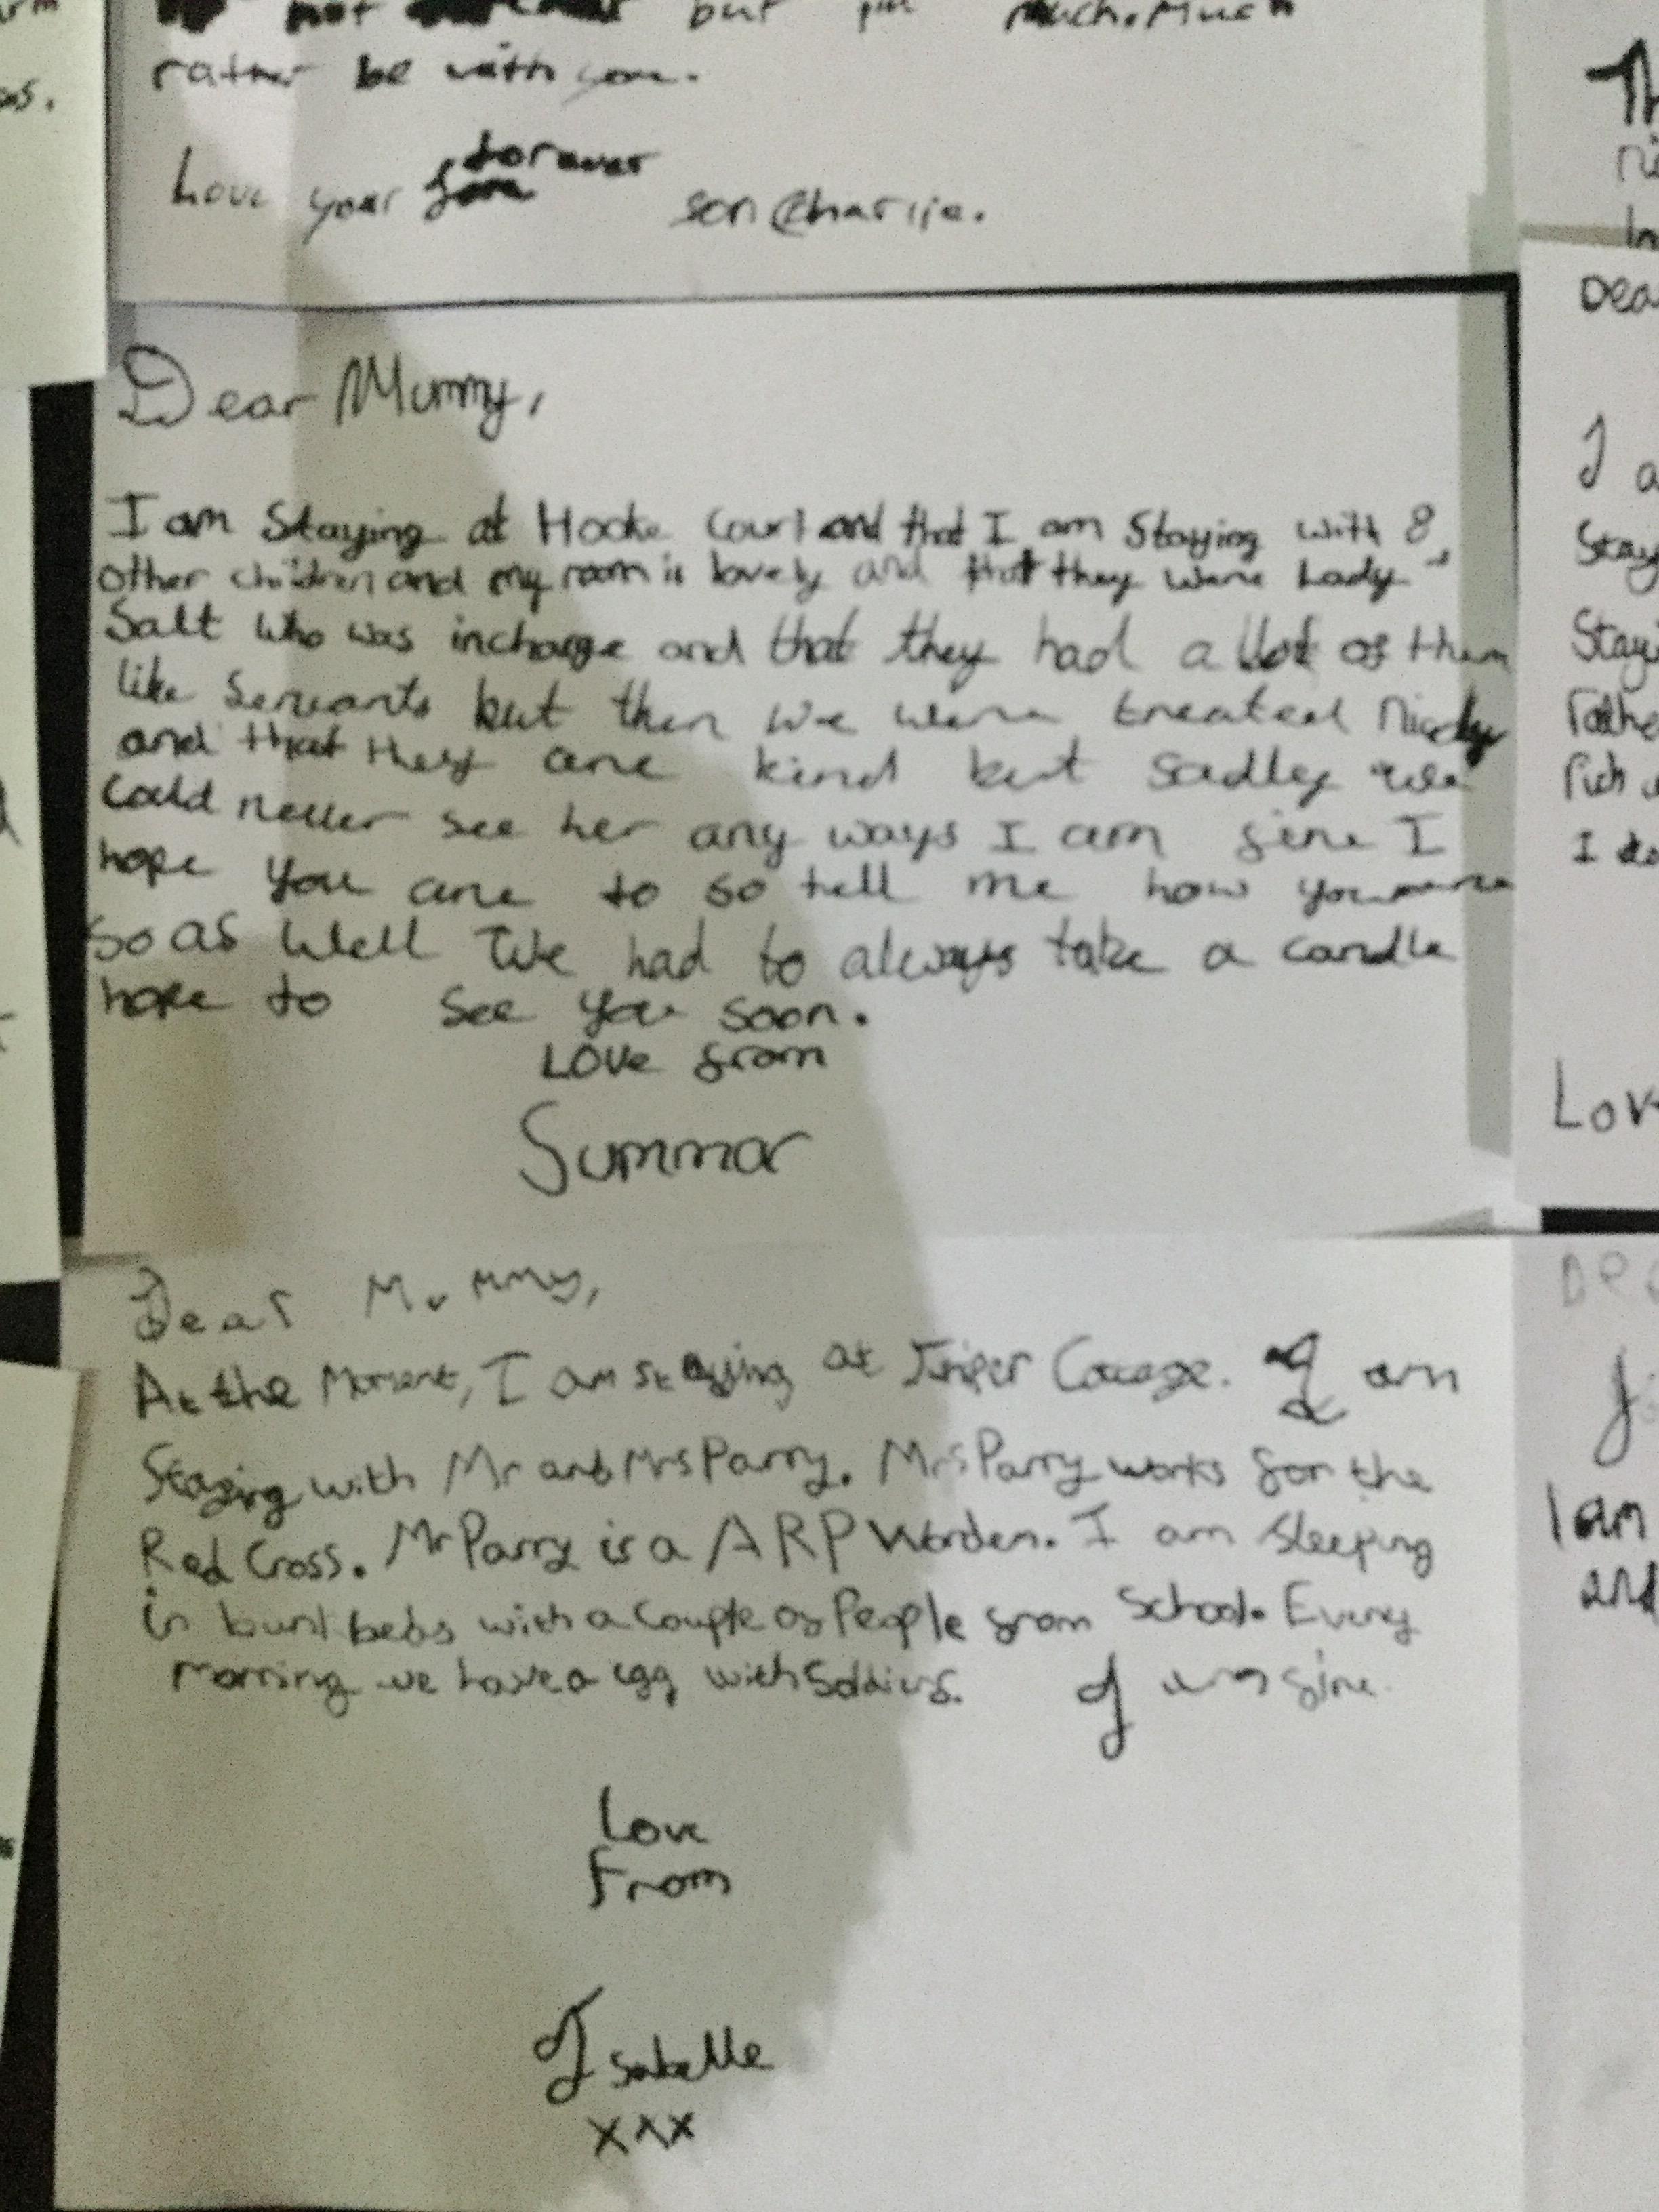 not but I'm much. Much
rather be with you.
forever
Love your son Charlie.
Dear Mummy,
I am Staying at Hooke Court and that I am Staying with 8,
other children and my room is lovely and that they were Lady
Salt who was incharge and that they had a lot of them
like Servants but then we were treated nicely
and that they are kind but sadley we
Could never see her any ways I am fine I
hope you are to so tell me how you
so as Well We had to always take a candle
hope to see you soon.
Love from
Summar
Dear Mummy,
At the Moment, I am staying at Juniper Cottage. I am
Staying with Mr and Mrs Parry. Mrs Parry works for the
Red Cross. Mr Parry is a ARP Warden. I am Sleeping
in bunk beds with a couple of People from School. Every
morning we have a egg with Soldiers. I am fine.
Love
From
Isabelle
xxx
as.
Th
Dea
I a
Stay
Stayi
I do
Lov
I am
and